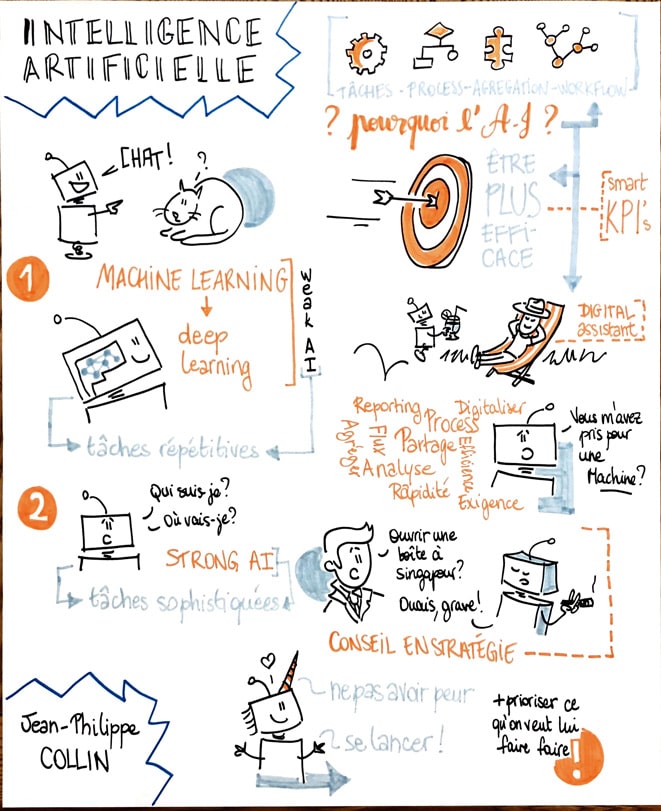 INTELLIGENCE
ARTIFICIELLE
TÂCHES - PROCESS - AGREGATION - WORKFLOW
? pourquoi l'A-I ?
CHAT!
?
ÊTRE
PLUS
EFFI-
CACE
smart
KPI's
1
MACHINE LEARNING
deep
learning
weak AI
tâches répétitives
DIGITAL
assistant!
Reporting
Digitaliser
Process
Flux
Agréger
Partage
Efficience
Analyse
Rapidité
Exigence
Vous m'avez
pris pour
une
Machine?
2
Qui suis-je?
Où vais-je?
STRONG AI
tâches sophistiquées
Ouvrir une
boîte à
singapour?
Ouais, grave!
CONSEIL EN STRATÉGIE
Jean-Philippe
COLLIN
ne pas avoir peur
se lancer!
+ prioriser ce
qu'on veut lui
faire faire
!